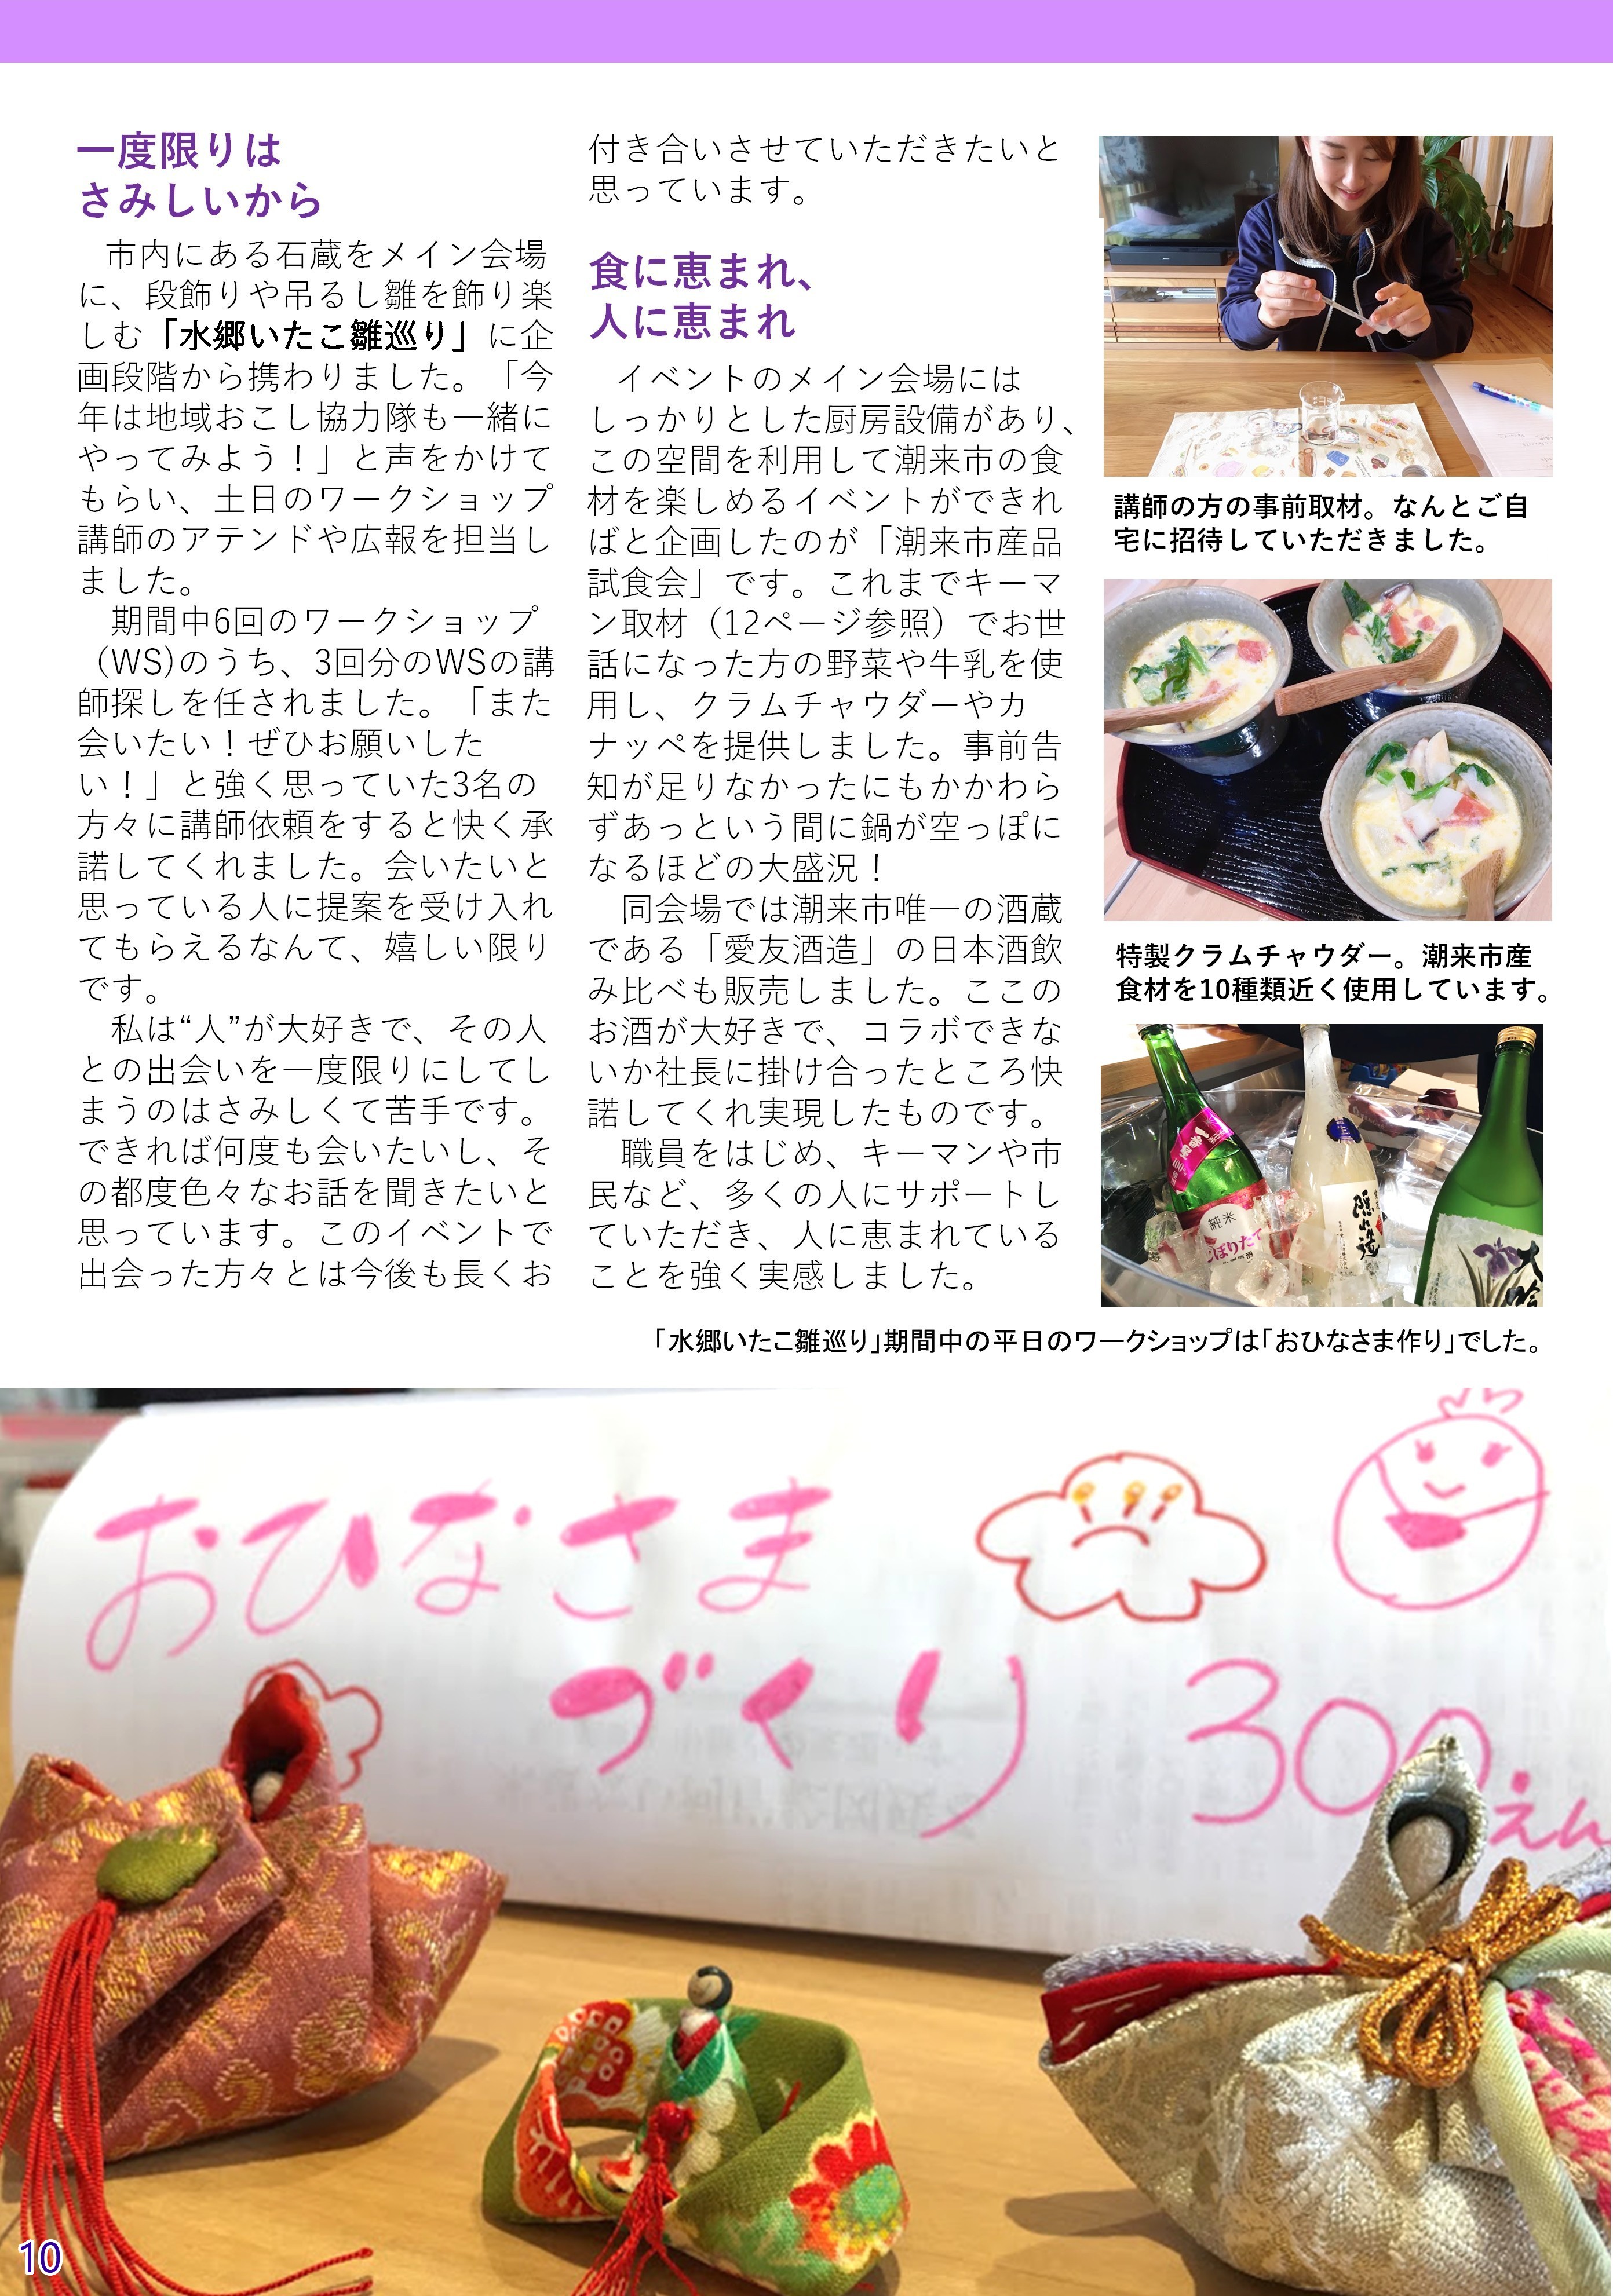 一度限りは
さみしいから
市内にある石蔵をメイン会場
に、段飾りや吊るし雛を飾り楽
しむ「水郷いたこ雛巡り」に企
画段階から携わりました。「今
年は地域おこし協力隊も一緒に
やってみよう！」と声をかけて
もらい、土日のワークショップ
講師のアテンドや広報を担当し
ました。
期間中6回のワークショップ
（WS)のうち、3回分のWSの講
師探しを任されました。「また
会いたい！ぜひお願いした
い！」と強く思っていた3名の
方々に講師依頼をすると快く承
諾してくれました。会いたいと
思っている人に提案を受け入れ
てもらえるなんて、嬉しい限り
です。
私は“人”が大好きで、その人
との出会いを一度限りにしてし
まうのはさみしくて苦手です。
できれば何度も会いたいし、そ
の都度色々なお話を聞きたいと
思っています。このイベントで
出会った方々とは今後も長くお
付き合いさせていただきたいと
思っています。
食に恵まれ、
人に恵まれ
イベントのメイン会場には
しっかりとした厨房設備があり、
この空間を利用して潮来市の食
材を楽しめるイベントができれ
ばと企画したのが「潮来市産品
試食会」です。これまでキーマ
ン取材（12ページ参照）でお世
話になった方の野菜や牛乳を使
用し、クラムチャウダーやカ
ナッペを提供しました。事前告
知が足りなかったにもかかわら
ずあっという間に鍋が空っぽに
なるほどの大盛況！
同会場では潮来市唯一の酒蔵
である「愛友酒造」の日本酒飲
み比べも販売しました。ここの
お酒が大好きで、コラボできな
いか社長に掛け合ったところ快
諾してくれ実現したものです。
職員をはじめ、キーマンや市
民など、多くの人にサポートし
ていただき、人に恵まれている
ことを強く実感しました。
講師の方の事前取材。なんとご自
宅に招待していただきました。
特製クラムチャウダー。潮来市産
食材を10種類近く使用しています。
純米
ぼりたて
「水郷いたこ雛巡り」期間中の平日のワークショップは「おひなさま作り」でした。
おひなさま
づくり
300えん
10